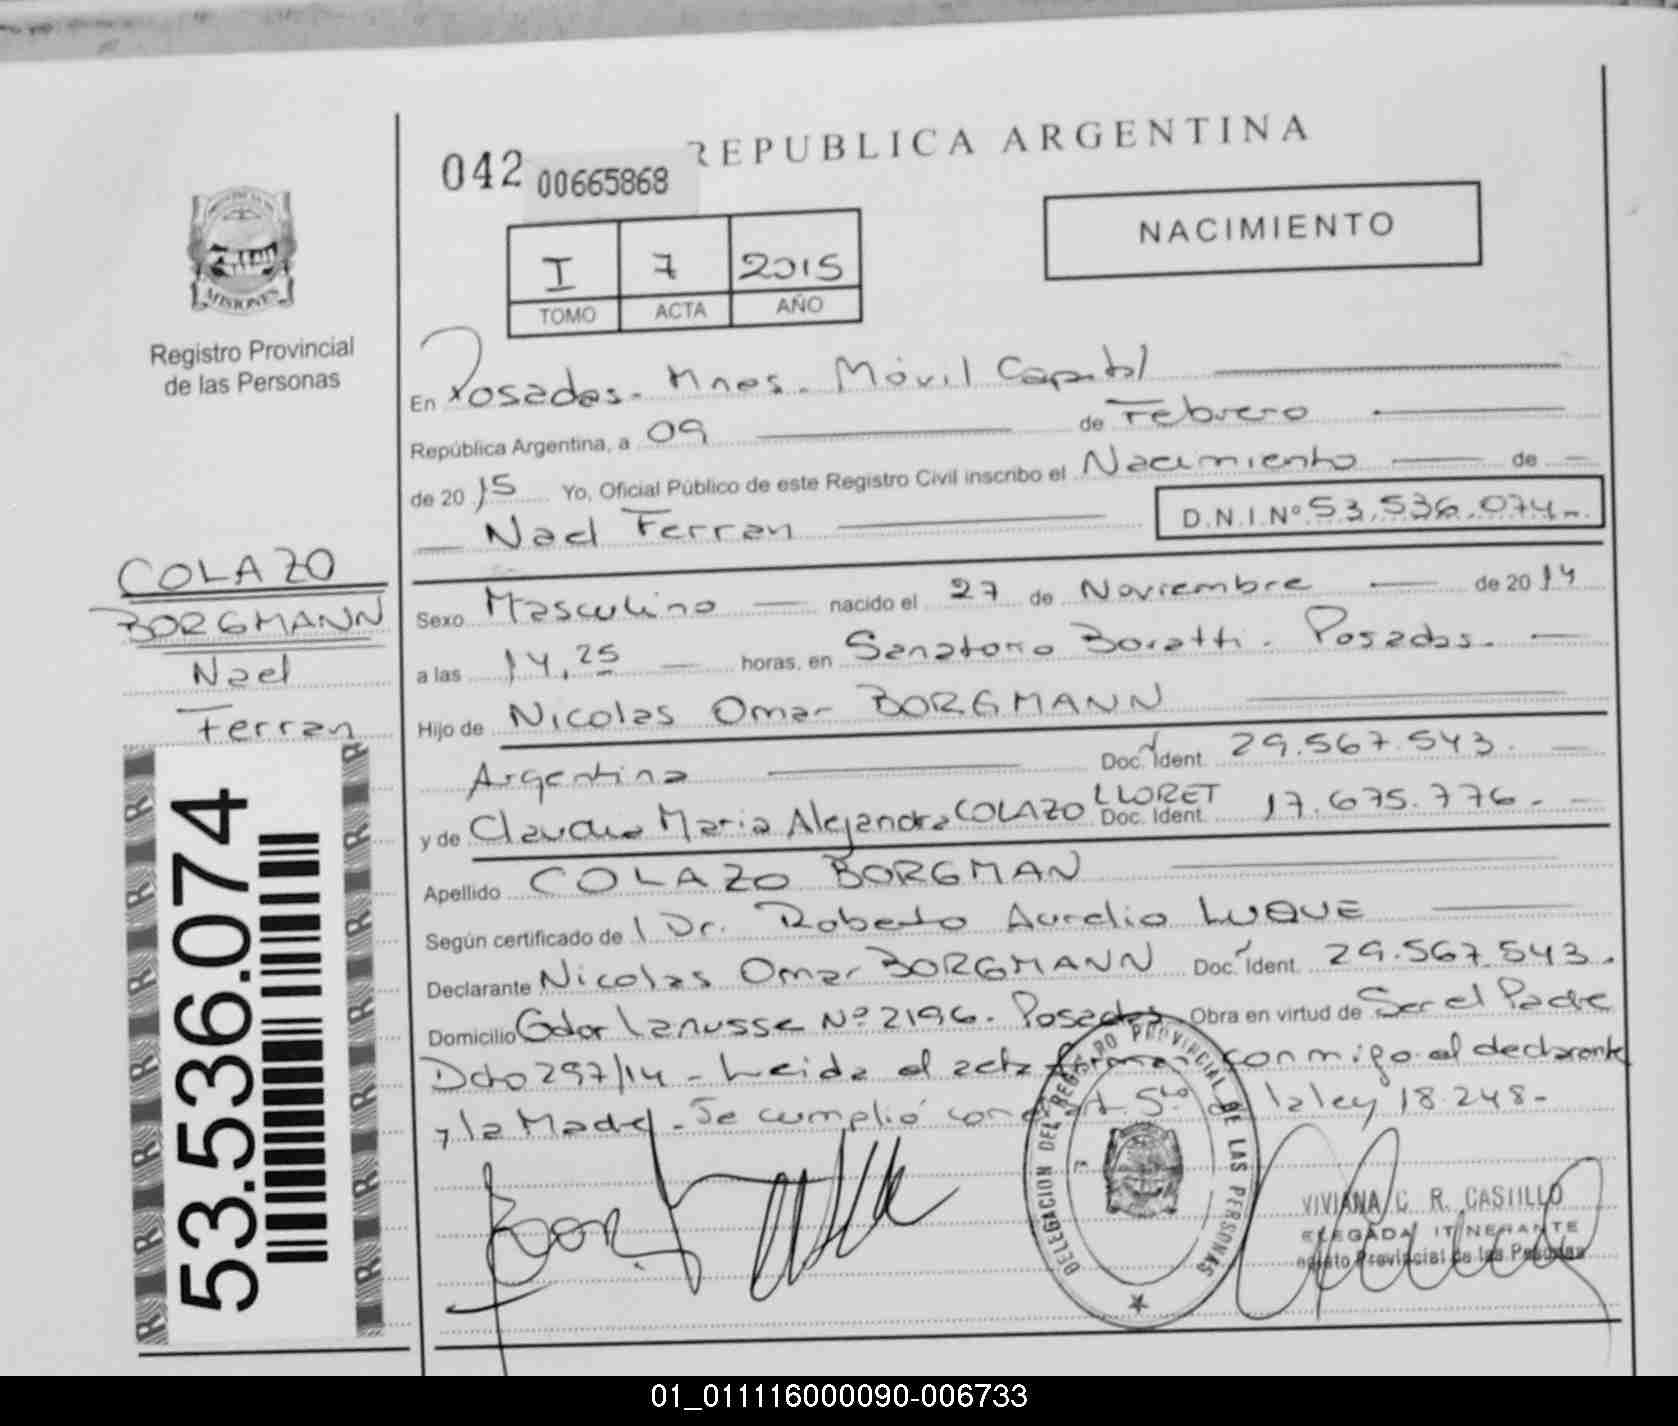 REPUBLICA ARGENTINA
042 00665868
NACIMIENTO
I 7 2015
TOMO ACTA AÑO
MISIONES
Registro Provincial
de las Personas
En Posadas - Mnes - Móvil Capital
República Argentina, a 09 de Febrero
de 2015 Yo, Oficial Público de este Registro Civil inscribo el Nacimiento de
Nael Ferran D.N.I.Nº 53.536.074
COLAZO
BORGMANN
Nael
Ferran
53.536.074
Sexo Masculino nacido el 27 de Noviembre de 2014
a las 14,25 horas, en Sanatorio Boratti. Posadas.
Hijo de Nicolas Omar BORGMANN
Argentina Doc. Ident. 29.567.543.
y de Claudia Maria Alejandra COLAZO LLORET Doc. Ident. 17.675.776.
Apellido COLAZO BORGMAN
Según certificado de l Dr. Roberto Aurelio LUQUE
Declarante Nicolas Omar BORGMANN Doc. Ident. 29.567.543.
Domicilio Gdor Lanusse Nº 2196. Posadas. Obra en virtud de Ser el Padre
Dcto 297/14 - Leida el acta firman conmigo el declarante
y la Madre - Se cumplió con el Art. 5to de la ley 18.248-
DELEGACION DEL REGISTRO PROVINCIAL DE LAS PERSONAS
VIVIANA C. R. CASTILLO
ELEGADA ITINERANTE
Provincial de las Personas
01_011116000090-006733